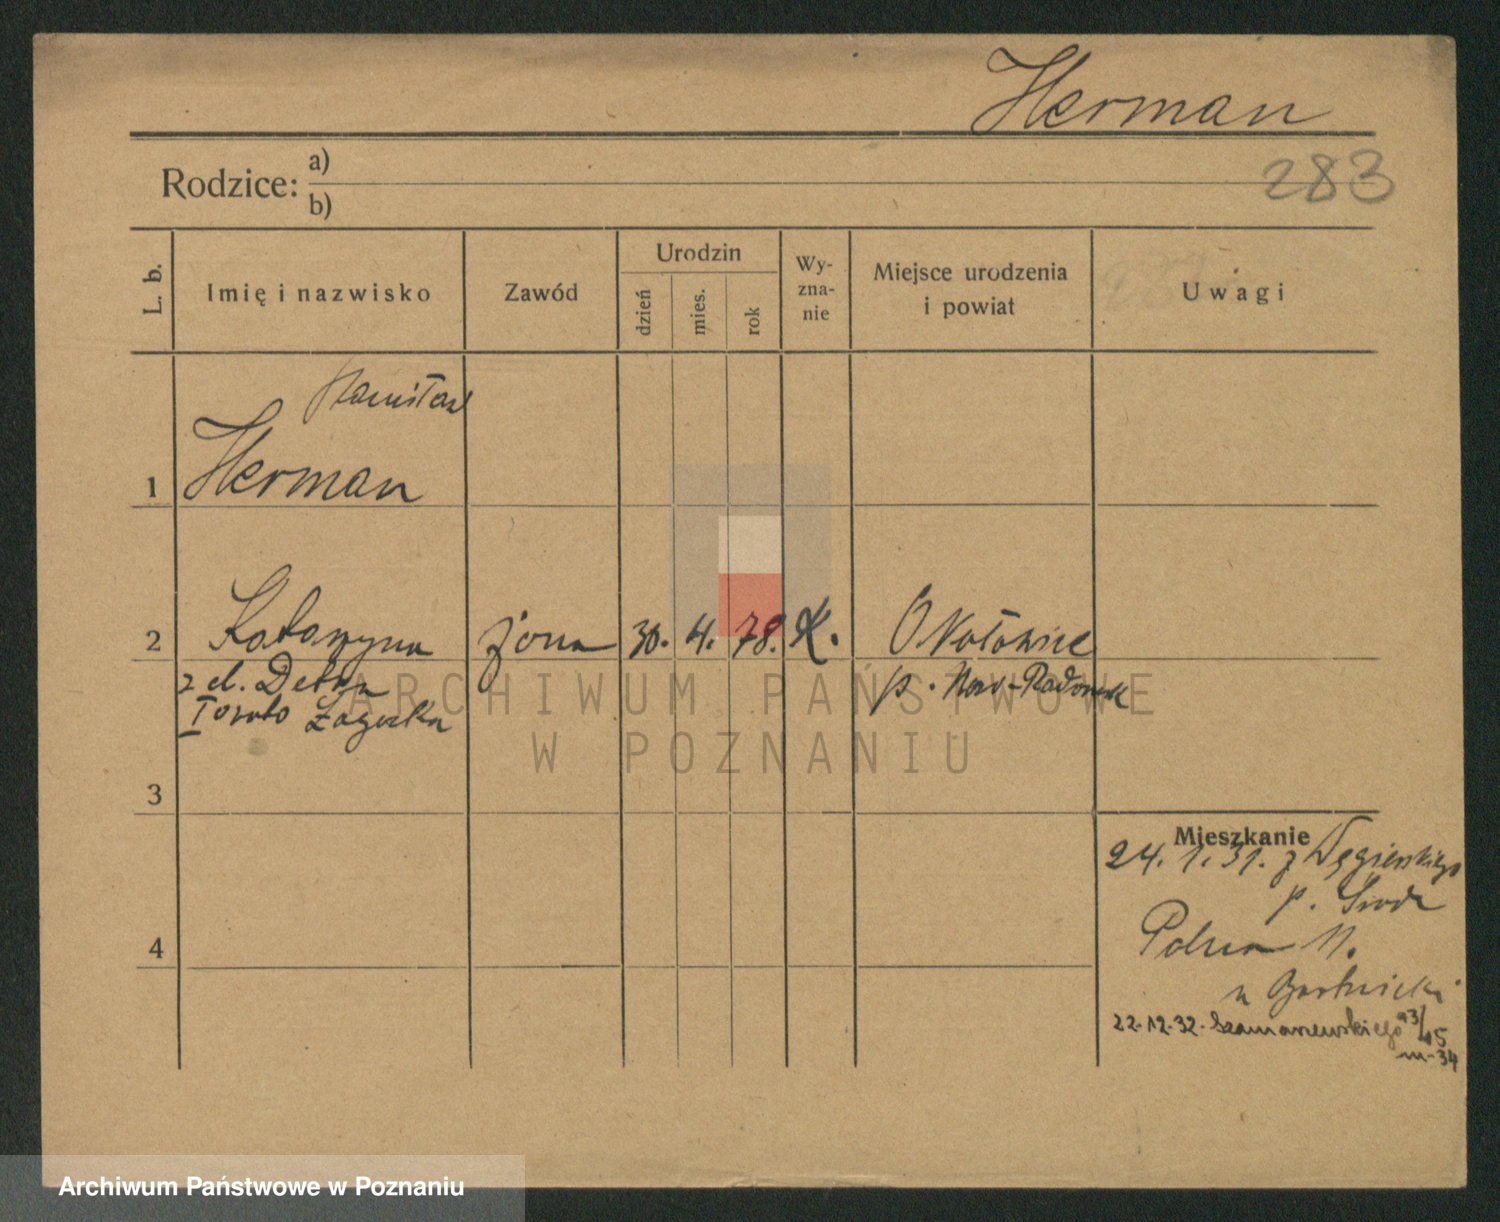 Herman
283
Rodzice: a)
b)
L. b.
Imię i nazwisko
Zawód
Urodzin
dzień
mies.
rok
Wy-
zna-
nie
Miejsce urodzenia
i powiat
Uwagi
Stanisław
1 Herman
2 Katarzyna żona 30. 4. 78. K.
z d.
3
4
p. Nowo-Radomsk
Mieszkanie
24. 1. 31. z
p. Środa
Polna 11.
u
22.12.32. Szamarzewskiego 43/45
m-34
ARCHIWUM PAŃSTWOWE
W POZNANIU
Archiwum Państwowe w Poznaniu